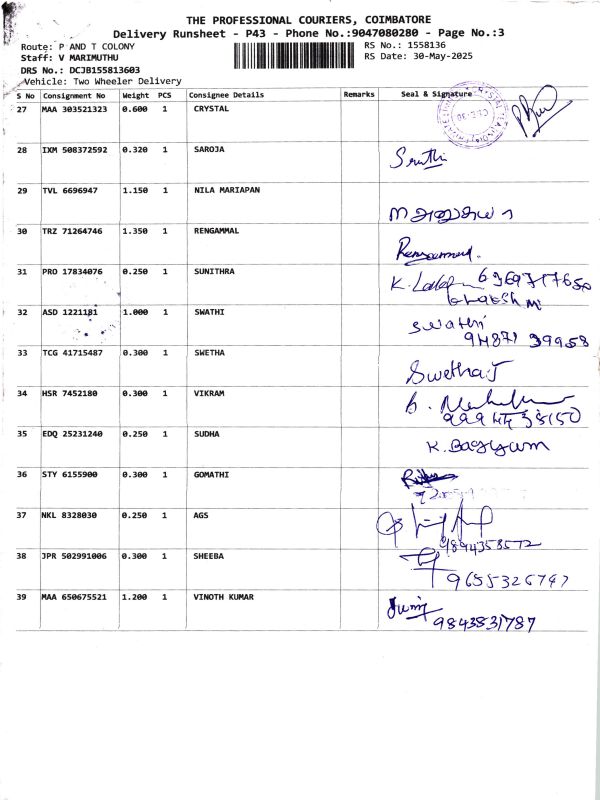 THE PROFESSIONAL COURIERS, COIMBATORE
Delivery Runsheet - P43 - Phone No.:9047080280 - Page No.:3
Route: P AND T COLONY
RS No.: 1558136
Staff: V MARIMUTHU
RS Date: 30-May-2025
DRS No.: DCJB155813603
Vehicle: Two Wheeler Delivery
S No Consignment No Weight PCS Consignee Details Remarks Seal & Signature
27 MAA 303521323 0.600 1 CRYSTAL
28 IXM 508372592 0.320 1 SAROJA Sruthi
29 TVL 6696947 1.150 1 NILA MARIAPAN
30 TRZ 71264746 1.350 1 RENGAMMAL
31 PRO 17834076 0.250 1 SUNITHRA K.
32 ASD 1221181 1.000 1 SWATHI Swathi
94871 39958
33 TCG 41715487 0.300 1 SWETHA Swetha.J
34 HSR 7452180 0.300 1 VIKRAM B.
35 EDQ 25231240 0.250 1 SUDHA K. Bagyum
36 STY 6155900 0.300 1 GOMATHI
37 NKL 8328030 0.250 1 AGS
9894358572
38 JPR 502991006 0.300 1 SHEEBA
9655326747
39 MAA 650675521 1.200 1 VINOTH KUMAR
9843831787